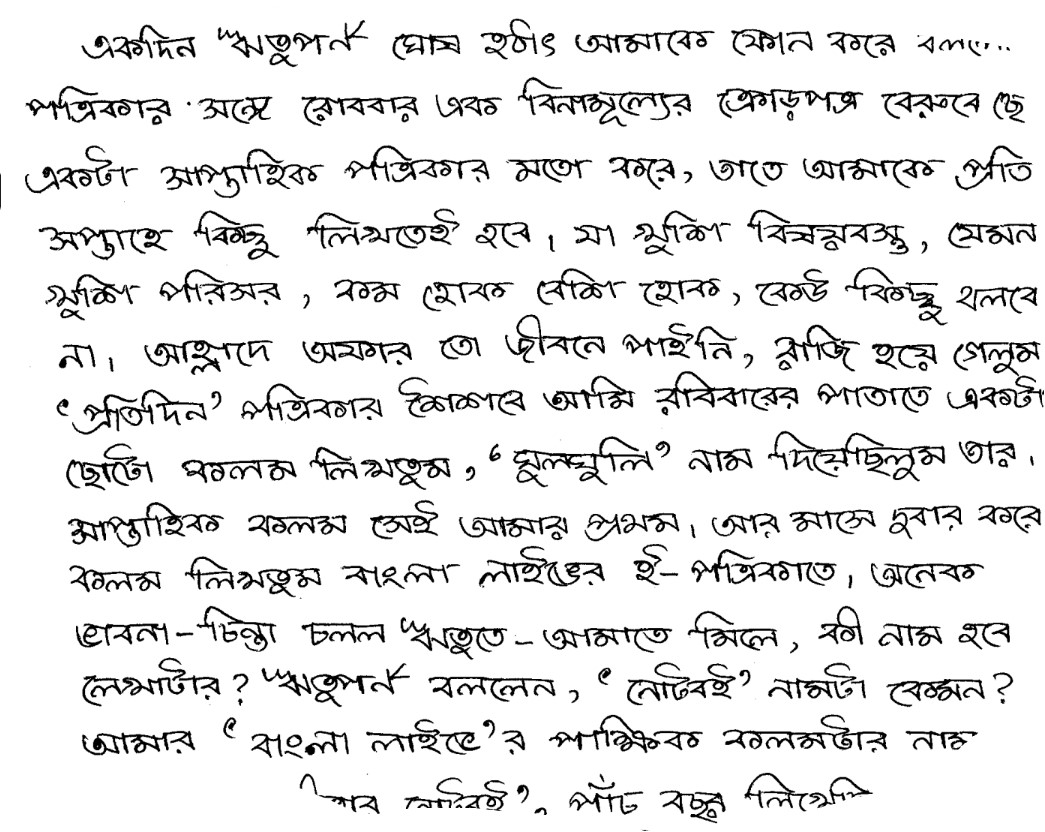 একদিন ঋতুপর্ণ ঘোষ হঠাৎ আমাকে ফোন করে
পত্রিকার সঙ্গে রোববার এক বিনামূল্যের ক্রোড়পত্র বেরুবে
একটা সাপ্তাহিক পত্রিকার মতো করে, তাতে আমাকে প্রতি
সপ্তাহে কিছু লিখতেই হবে। যা খুশি বিষয়বস্তু, যেমন
খুশি পরিসর, কম হোক বেশি হোক, কেউ কিছু বলবে
না। আহ্লাদে অফার তো জীবনে পাইনি, রাজি হয়ে গেলুম
‘প্রতিদিন’ পত্রিকার শৈশবে আমি রবিবারের পাতাতে একটা
ছোটো কলম লিখতুম, ‘ঘুলঘুলি’ নাম দিয়েছিলুম তার।
সাপ্তাহিক কলম সেই আমার প্রথম। আর মাসে দুবার করে
কলম লিখতুম বাংলা লাইভের ই-পত্রিকাতে। অনেক
ভাবনা-চিন্তা চলল ঋতুতে-আমাতে মিলে, কী নাম হবে
লেখাটার? ঋতুপর্ণ বললেন, ‘নোটবই’ নামটা কেমন?
আমার ‘বাংলা লাইভে’র পাক্ষিক কলমটার নাম
নোটবই’, পাঁচ বছর